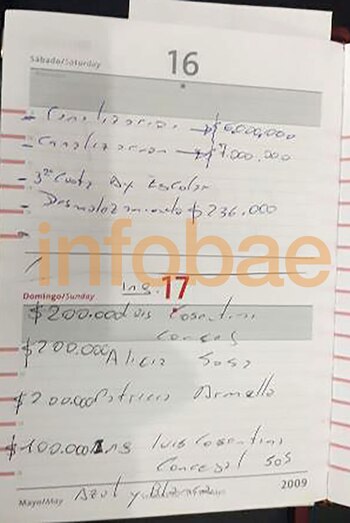 Sábado/Saturday 16
- Canalización → $6.000.000
- Canalización → $7.000.000
- 3ra Cuota Ay Escolar
- Desmalezamiento $236.000
infobae
Ing.
Domingo/Sunday 17
$200.000 Luis Cosentino
$200.000 Alicia Sosa
$200.000 Patricia
$100.000 Ing Luis Cosentino
Concejal SOS
2009
Mayo/May Azul y